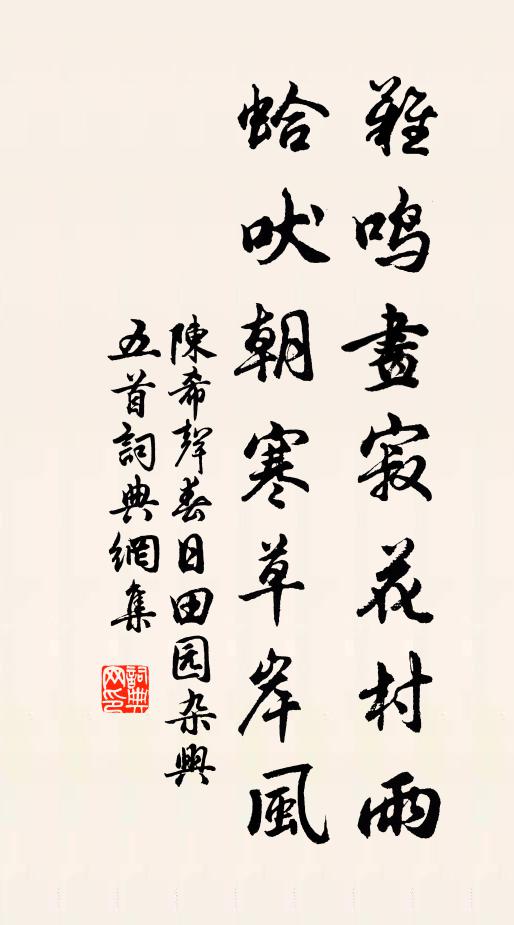 雞鳴晝寂花村雨
蛤吠朝寒草岸風
陳希聲春日田园杂興
五首詞典網集
詞典网印